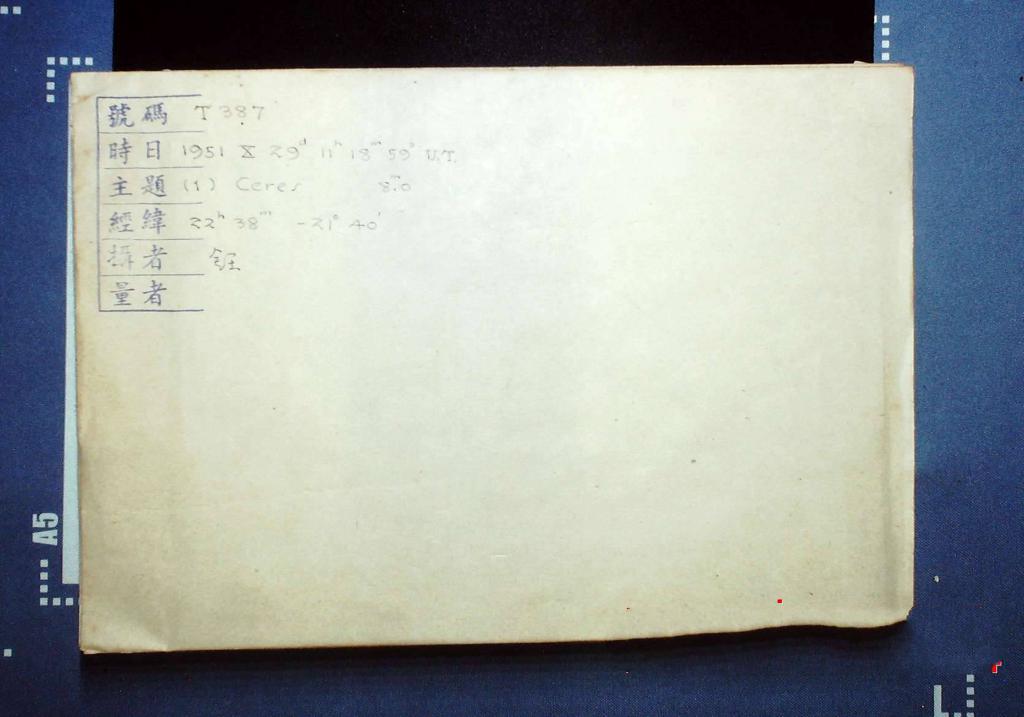 號碼 T 387
時日 1951 X 29ᵈ 11ʰ 18ᵐ 59ˢ U.T.
主題 (1) Ceres 8.ᵐ0
經緯 22ʰ 38ᵐ -21° 40'
攝者 鈺
量者
A5